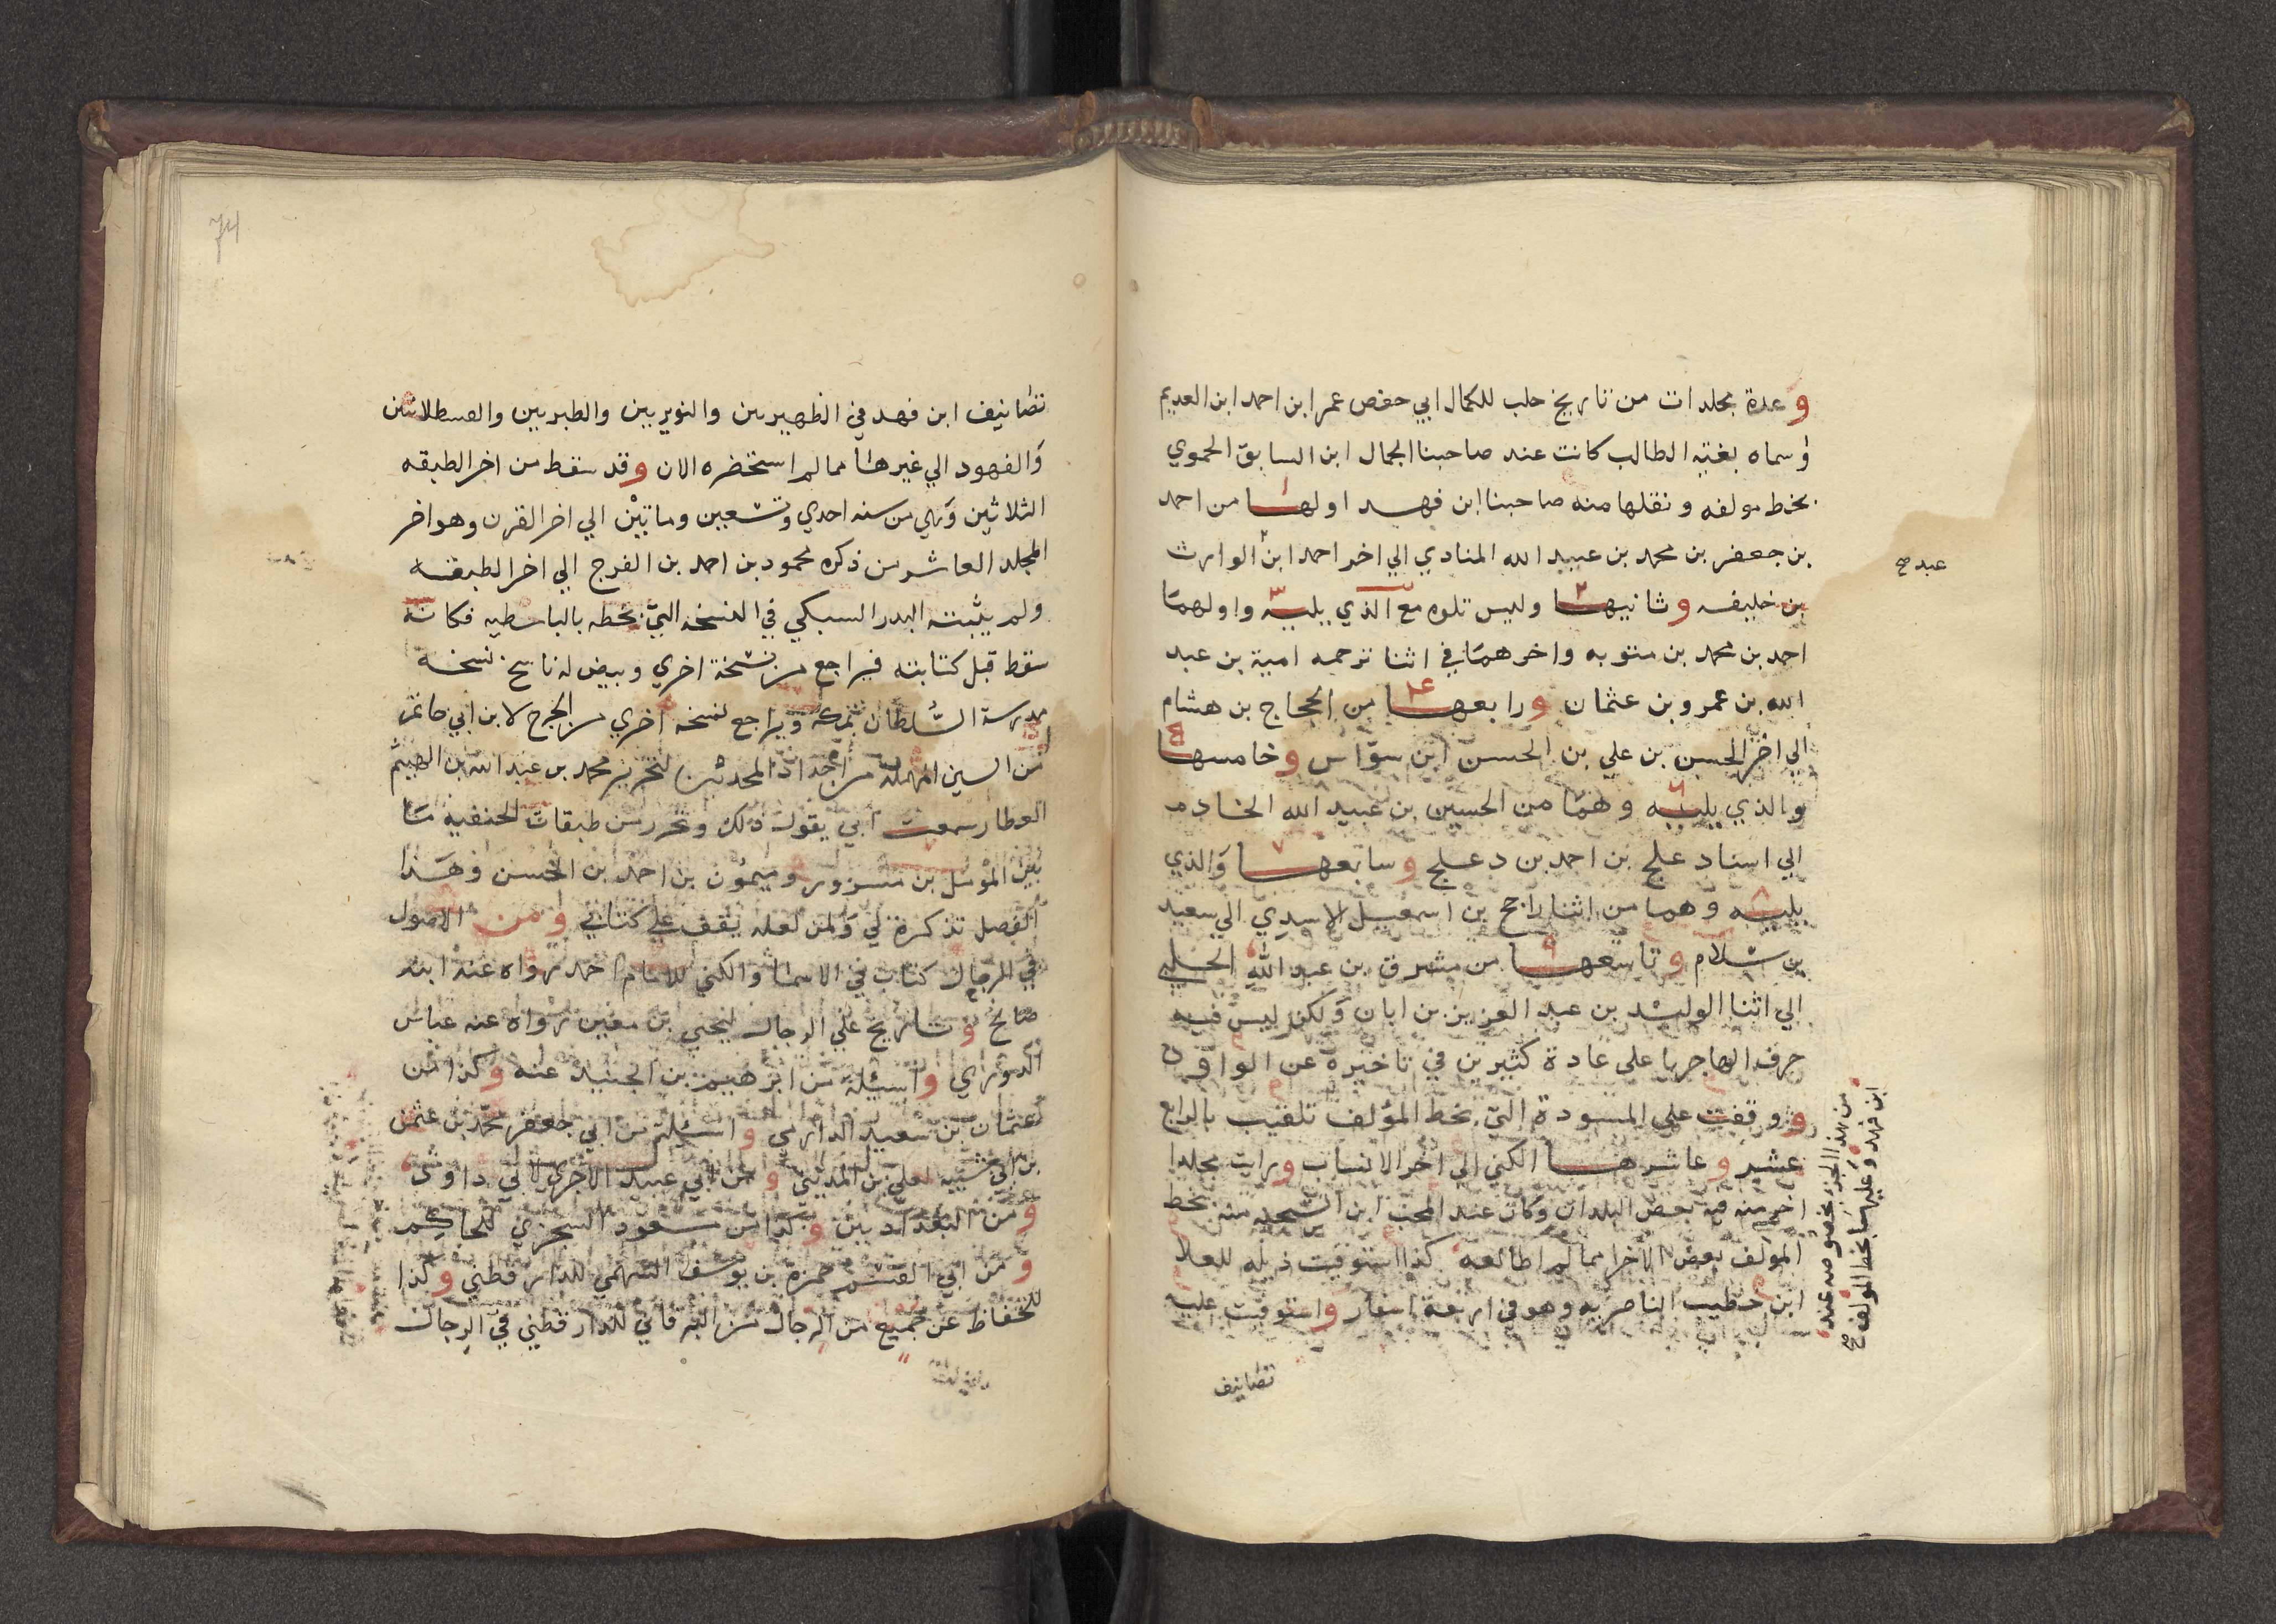 وعدة مجلدات من تاريخ حلب للكمال ابي حفص عمر ابن احمد ابن العديم
وسماه بغية الطالب كانت عند صاحبنا الجمال ابن السابق الحموي
بخط مولفه ونقلها منه صاحبنا ابن فهد اولها من احمد
بن جعفر بن محمد بن عبيد الله المنادي الي اخر احمد ابن الوارث
عبد صح
بن خليفه وثانيها وليس تلوه مع الذي يليه واولهما
احمد بن محمد بن متويه واخرهما في اثنا ترجمه امية بن عبد
الله بن عمرو بن عثمان ورابعها من الحجاج بن هشام
الي اخر الحسن بن علي بن الحسن ابن سواس وخامسها
والذي يليه وهما من الحسين بن عبيد الله الخادم
الي اسناد علج بن احمد بن دعلج وسابعها والذي
يليه وهما من اثنا راجح بن اسمعيل الاسدي الي سعيد
بن سلام وتاسعها من مشرق بن عبد الله الحلبي
الي اثنا الوليد بن عبد العزيز بن ابان ولكن ليس فيه
حرف الهاء جريا على عادة كثيرين في تاخيره عن الواو
ووقفت على المسودة التي بخط المؤلف تلقيب بالرابع
عشر وعاشرها الكني الي اخر الانساب ورايت مجلدا
اخر منه فيه بعض البلدان وكان عند المحب ابن الشحنه منه بخط
المولف بعض الاخر مما لم اطالعه كذا استوفيت ذيله للعلا
ابن خطيب الناصريه وهو في اربعة اسفار واستوفيت عليه
من هذا الجزء بخصوصه عند
ابن فهد وعليها بخط المولف صح
تصانيف
74
تصانيف ابن فهد في الظهيريين والنويريين والطبريين والقسطلانيين
والفهود الي غيرها مما لم استحضره الان وقد سقط من اخر الطبقه
الثلاثين وهي من سنه احدي وتسعين وماتين الي اخر القرن وهو اخر
المجلد العاشر من ذكره محمود بن احمد بن الفرج الي اخر الطبقه
ولم يثبته البدر السبكي في النسخه التي بخطه بالباسطيه فكانه
سقط قبل كتابته فيراجع من نسخة اخري وبيض له ناسخ نسخه
مدرسة السلطان بمكه ويراجع نسخه اخري من الجرح لابن ابي حاتم
من السين المهمله من اجداد المحدثين لتحرير محمد بن عبد الله بن الهيثم
العطار سمعت ابي يقول ذلك وتحرر من طبقات الحنفيه ما
بين المؤمل بن مسرور وميمون بن احمد بن الحسن وهذا
الفصل تذكرة لي ولمن لعله يقف علي كتابي ومن الاصول
في الرجال كتاب في الاسما والكني للامام احمد رواه عنه ابنه
صالح وتاريخ علي الرجال ليحيي بن معين رواه عنه عباس
الدوري واسئلة من ابرهيم بن الجنيد عنه وكذا من
عثمان بن سعيد الدارمي واسئلة من ابي جعفر محمد بن عثمن
بن ابي شيبه لعلي بن المديني ومن ابي عبيد الاجري لابي داود
ومن البغداديين وكذا من مسعود السجزي للحاكم
ومن ابي القسم حمزة بن يوسف السهمي للدارقطني وكذا
للحفاظ عن جميع من الرجال من البرقاني للدارقطني في الرجال